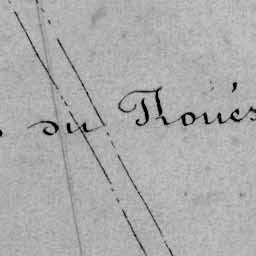 du Thoués